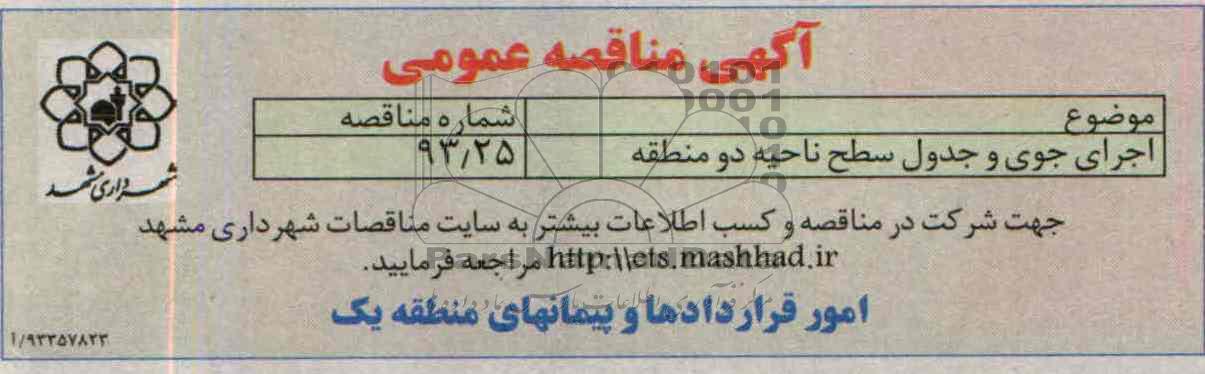 آگهی مناقصه عمومی
موضوع
شماره مناقصه
اجرای جوی و جدول سطح ناحیه دو منطقه
۹۳/۲۵
شهرداری مشهد
جهت شرکت در مناقصه و کسب اطلاعات بیشتر به سایت مناقصات شهرداری مشهد
http:\\ets.mashhad.ir مراجعه فرمایید.
امور قراردادها و پیمانهای منطقه یک
۹۳۳۵۷۸۲۳/آ